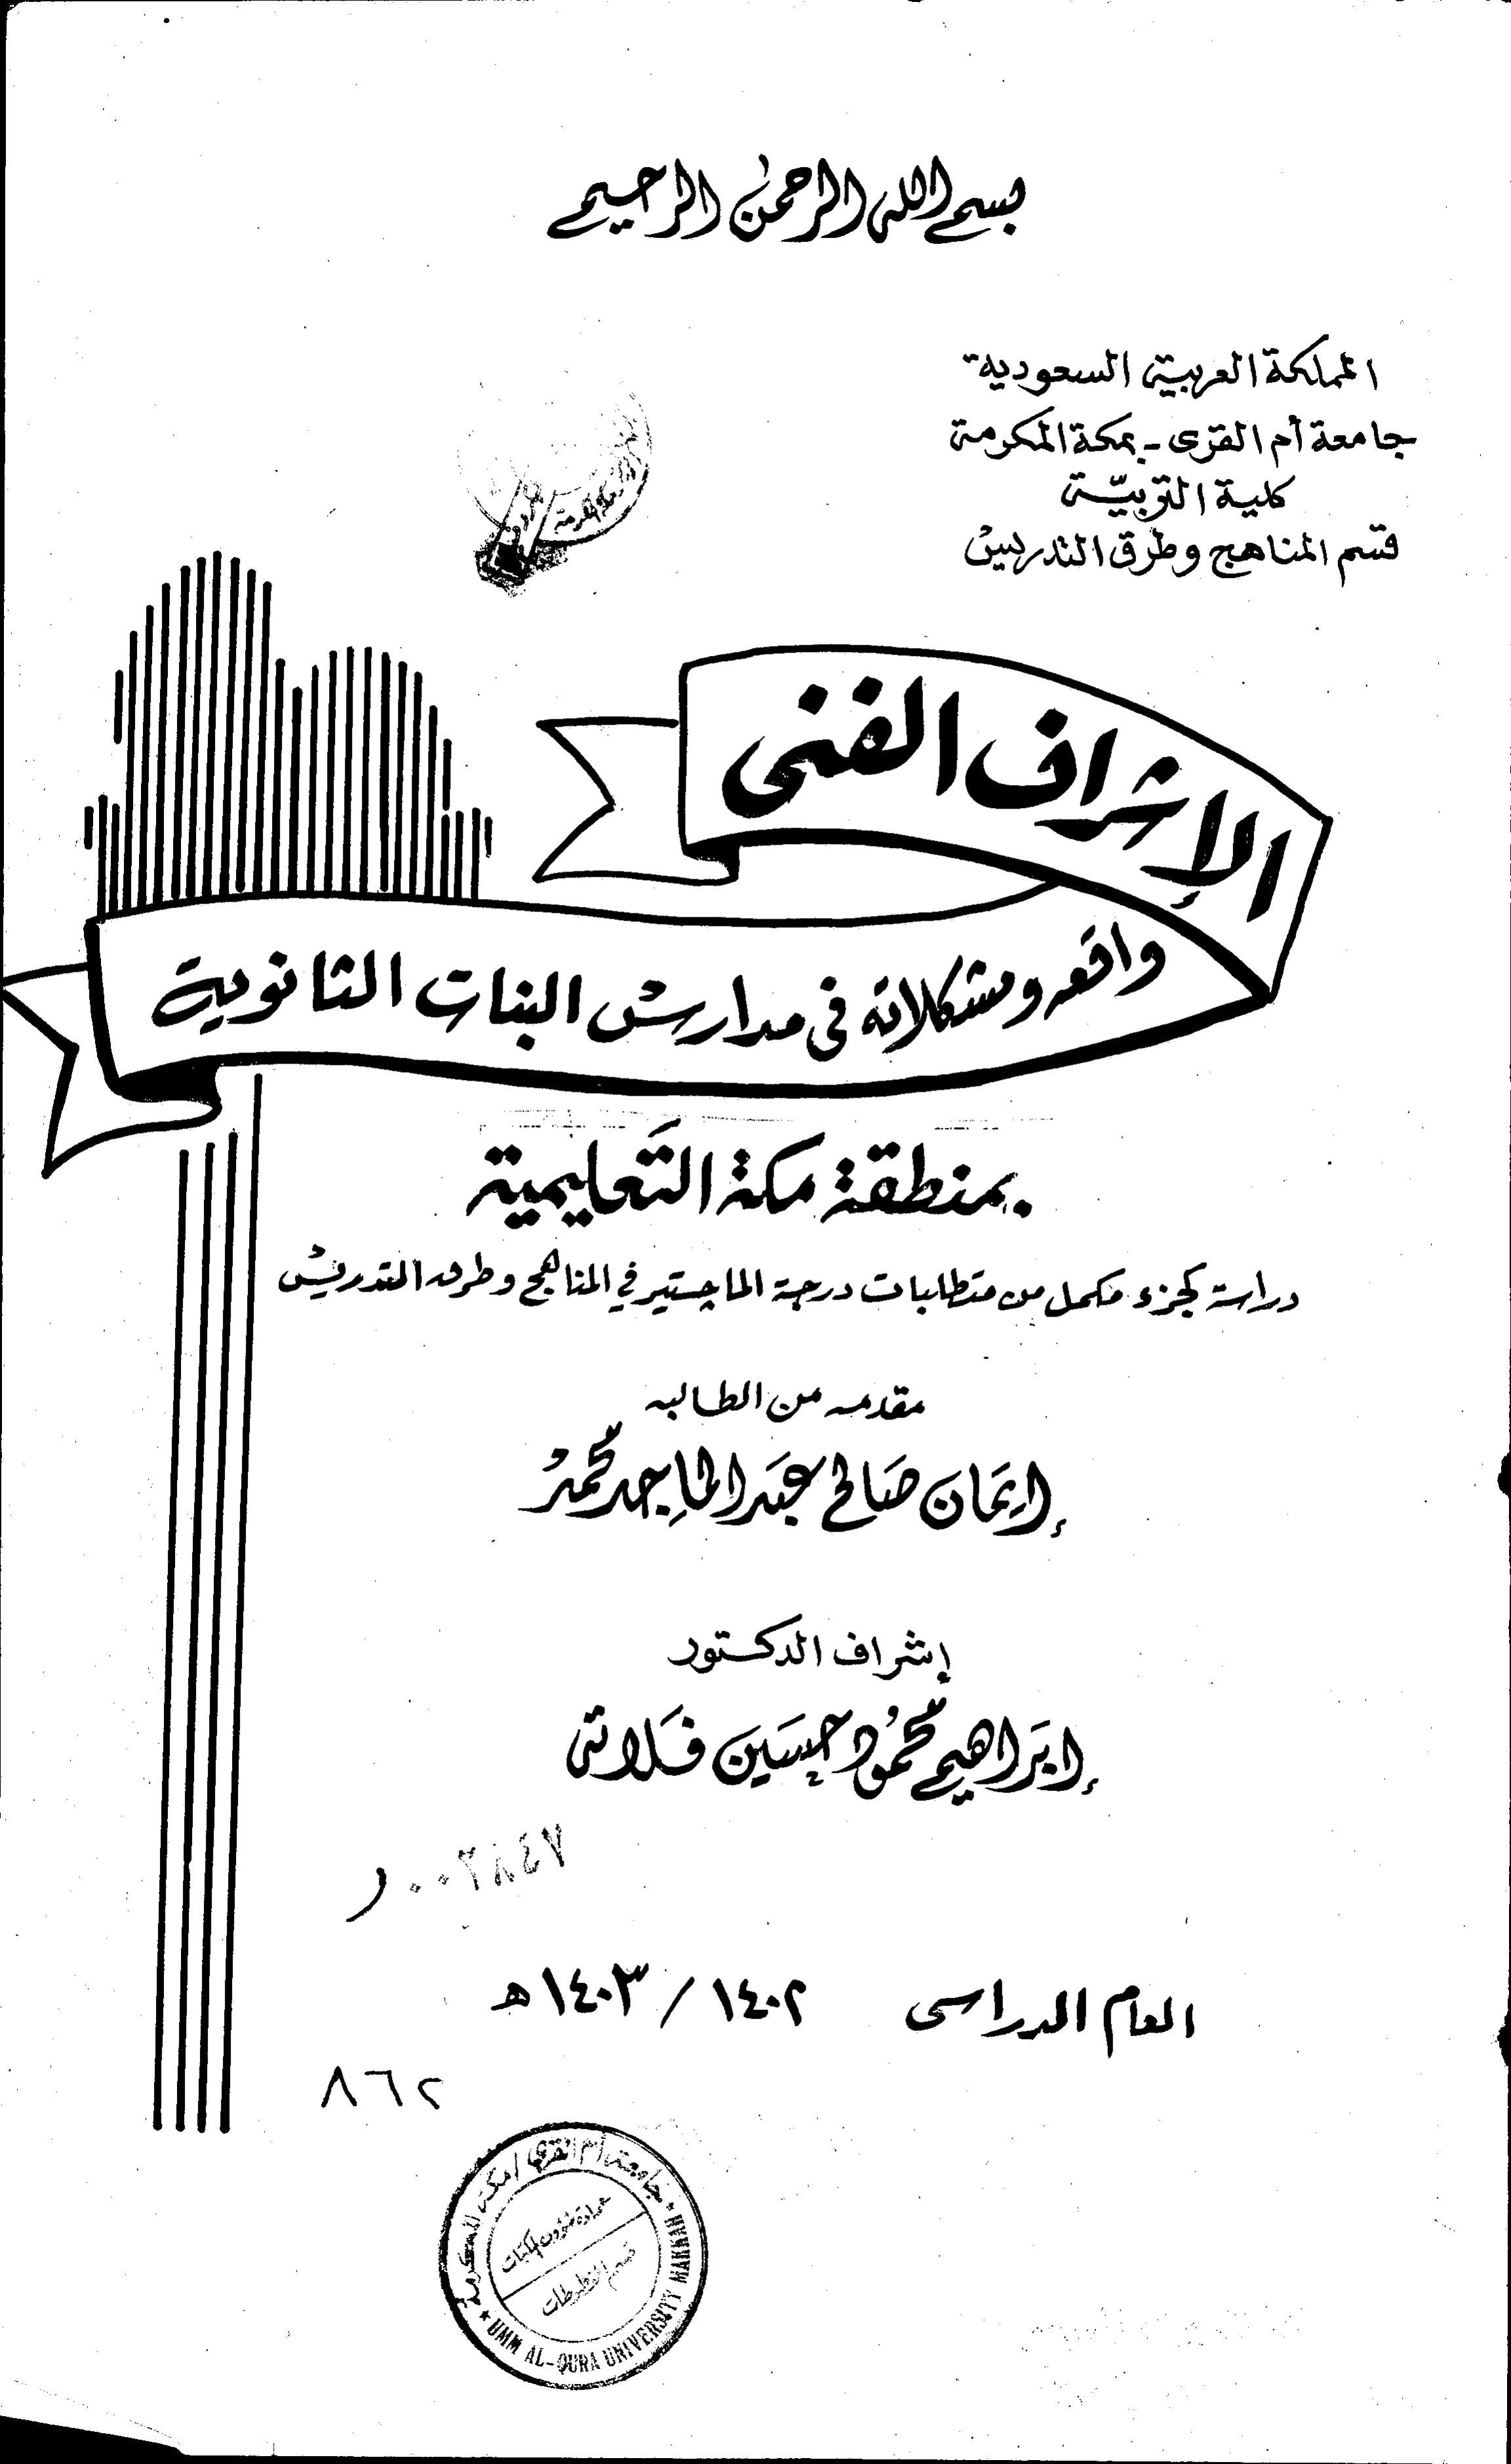 بسم الله الرحمن الرحيم
المملكة العربية السعودية
جامعة أم القرى - بمكة المكرمة
كلية التربية
قسم المناهج وطرق التدريس
الإشراف الفنى
واقعه ومشكلاته فى مدارس البنات الثانوية
بمنطقة مكة التعليمية
دراسة كجزء مكمل من متطلبات درجة الماجستير في المناهج وطرق التدريس
مقدمه من الطالبه
إيمان صالح عبد الماجد محمد
إشراف الدكتور
إبراهيم محمود حسين فلاته
العام الدراسى ١٤٠٢ / ١٤٠٣ه
٨٦٢
جامعة أم القرى / مكة المكرمة
عمادة شؤون المكتبات
قسم المخطوطات
UMM AL-QURA UNIVERSITY MAKKAH